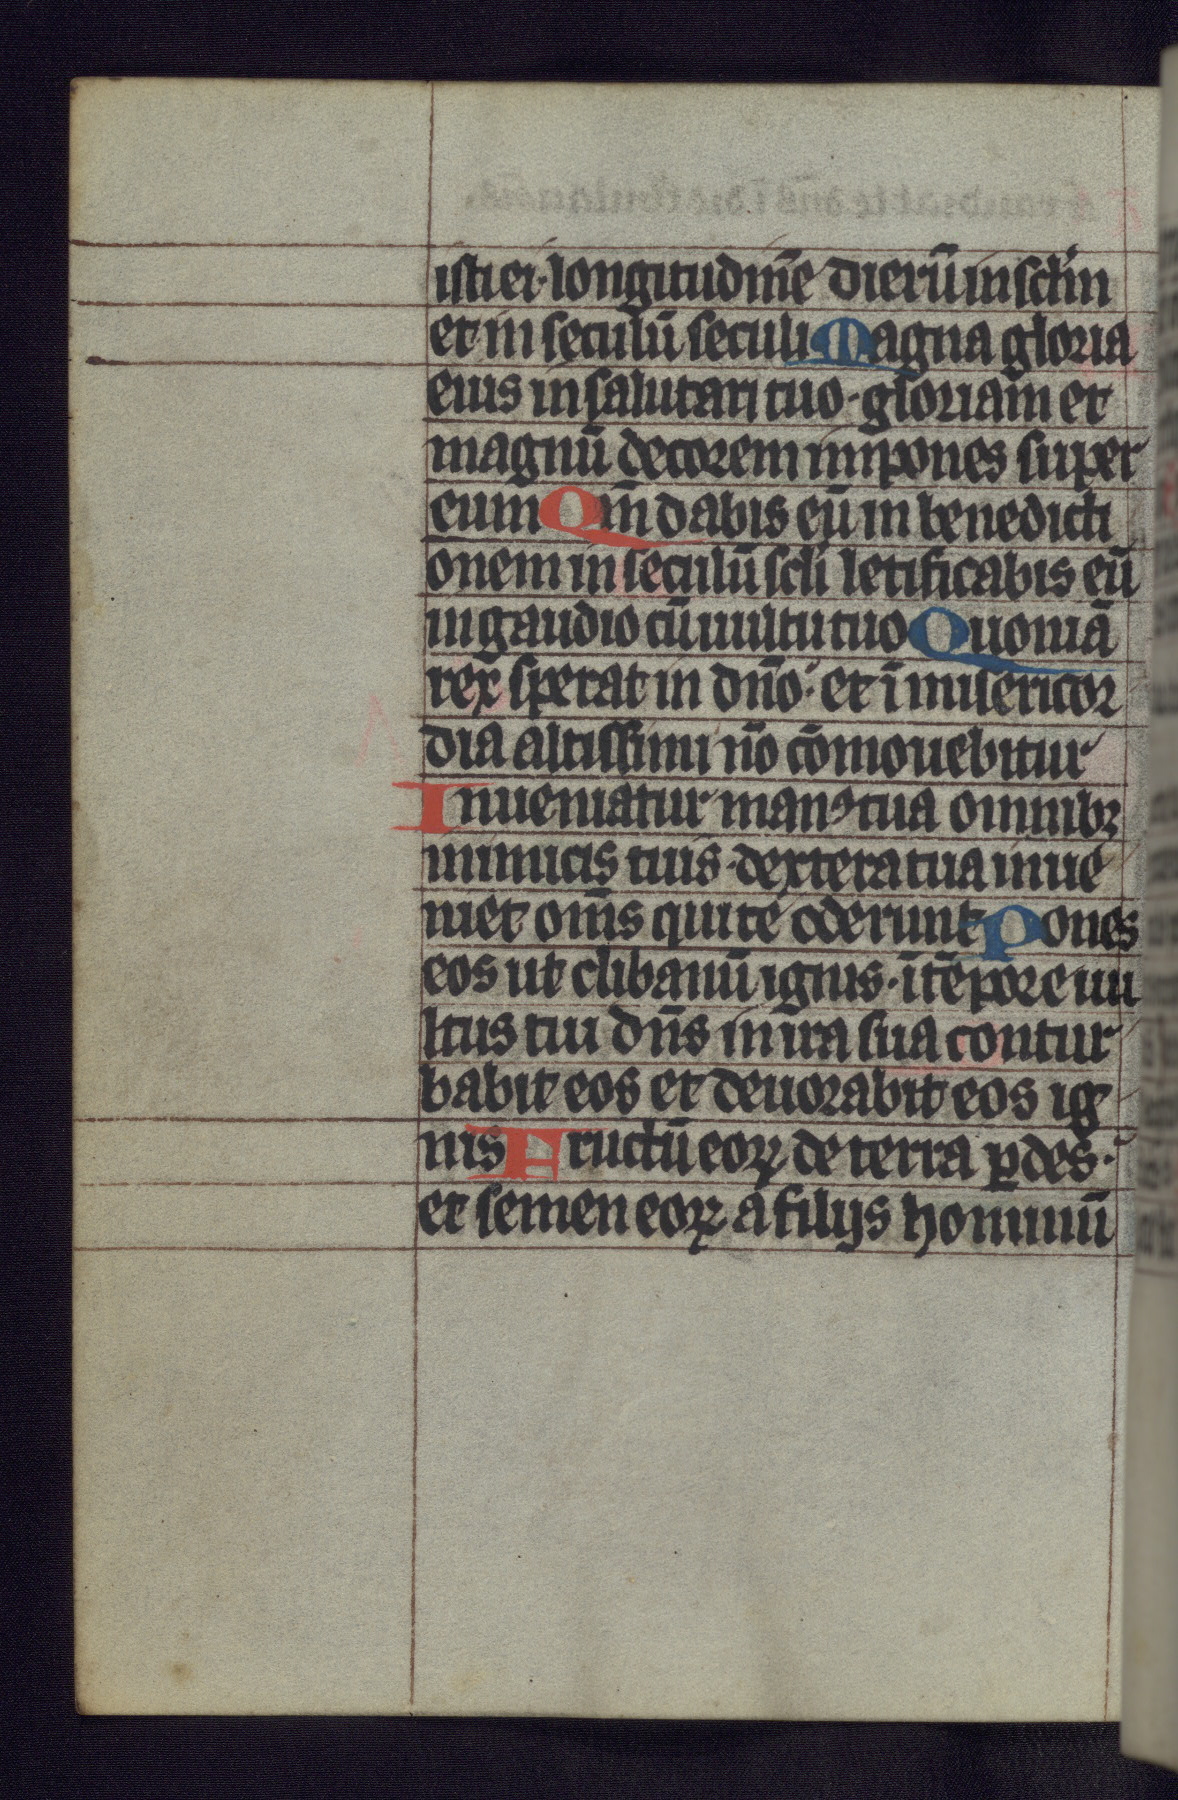 isti ei· longitudinē dierū in sclm̄
et in seculū seculi Magna gloria
eius in salutari tuo· gloriam et
magnū decorem impones super
eum Qm̄ dabis eū in benedicti
onem in seculū scli letificabis eū
in gaudio cū uultu tuo Quoniā
rex sperat in dn̄o· et ī misericor
dia altissimi nō cōmouebitur
Inueniatur manꝰ tua omnibꝫ
inimicis tuis· dextera tua inue
niet om̄s qui te oderunt Pones
eos ut clibanū ignis· ī tēpore uu
ltus tui dn̄s in ira sua contur
babit eos et deuorabit eos ig
nis Fructū eoꝝ de terra ꝑdes·
et semen eoꝝ a filijs hominū